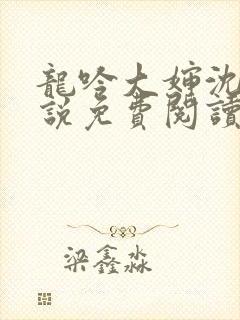 龍吟大婶沈
說免費閱讀
梁鑫淼